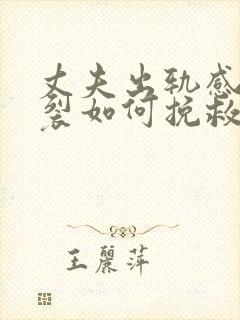 丈夫出轨感
裂如何挽救
王麗萍